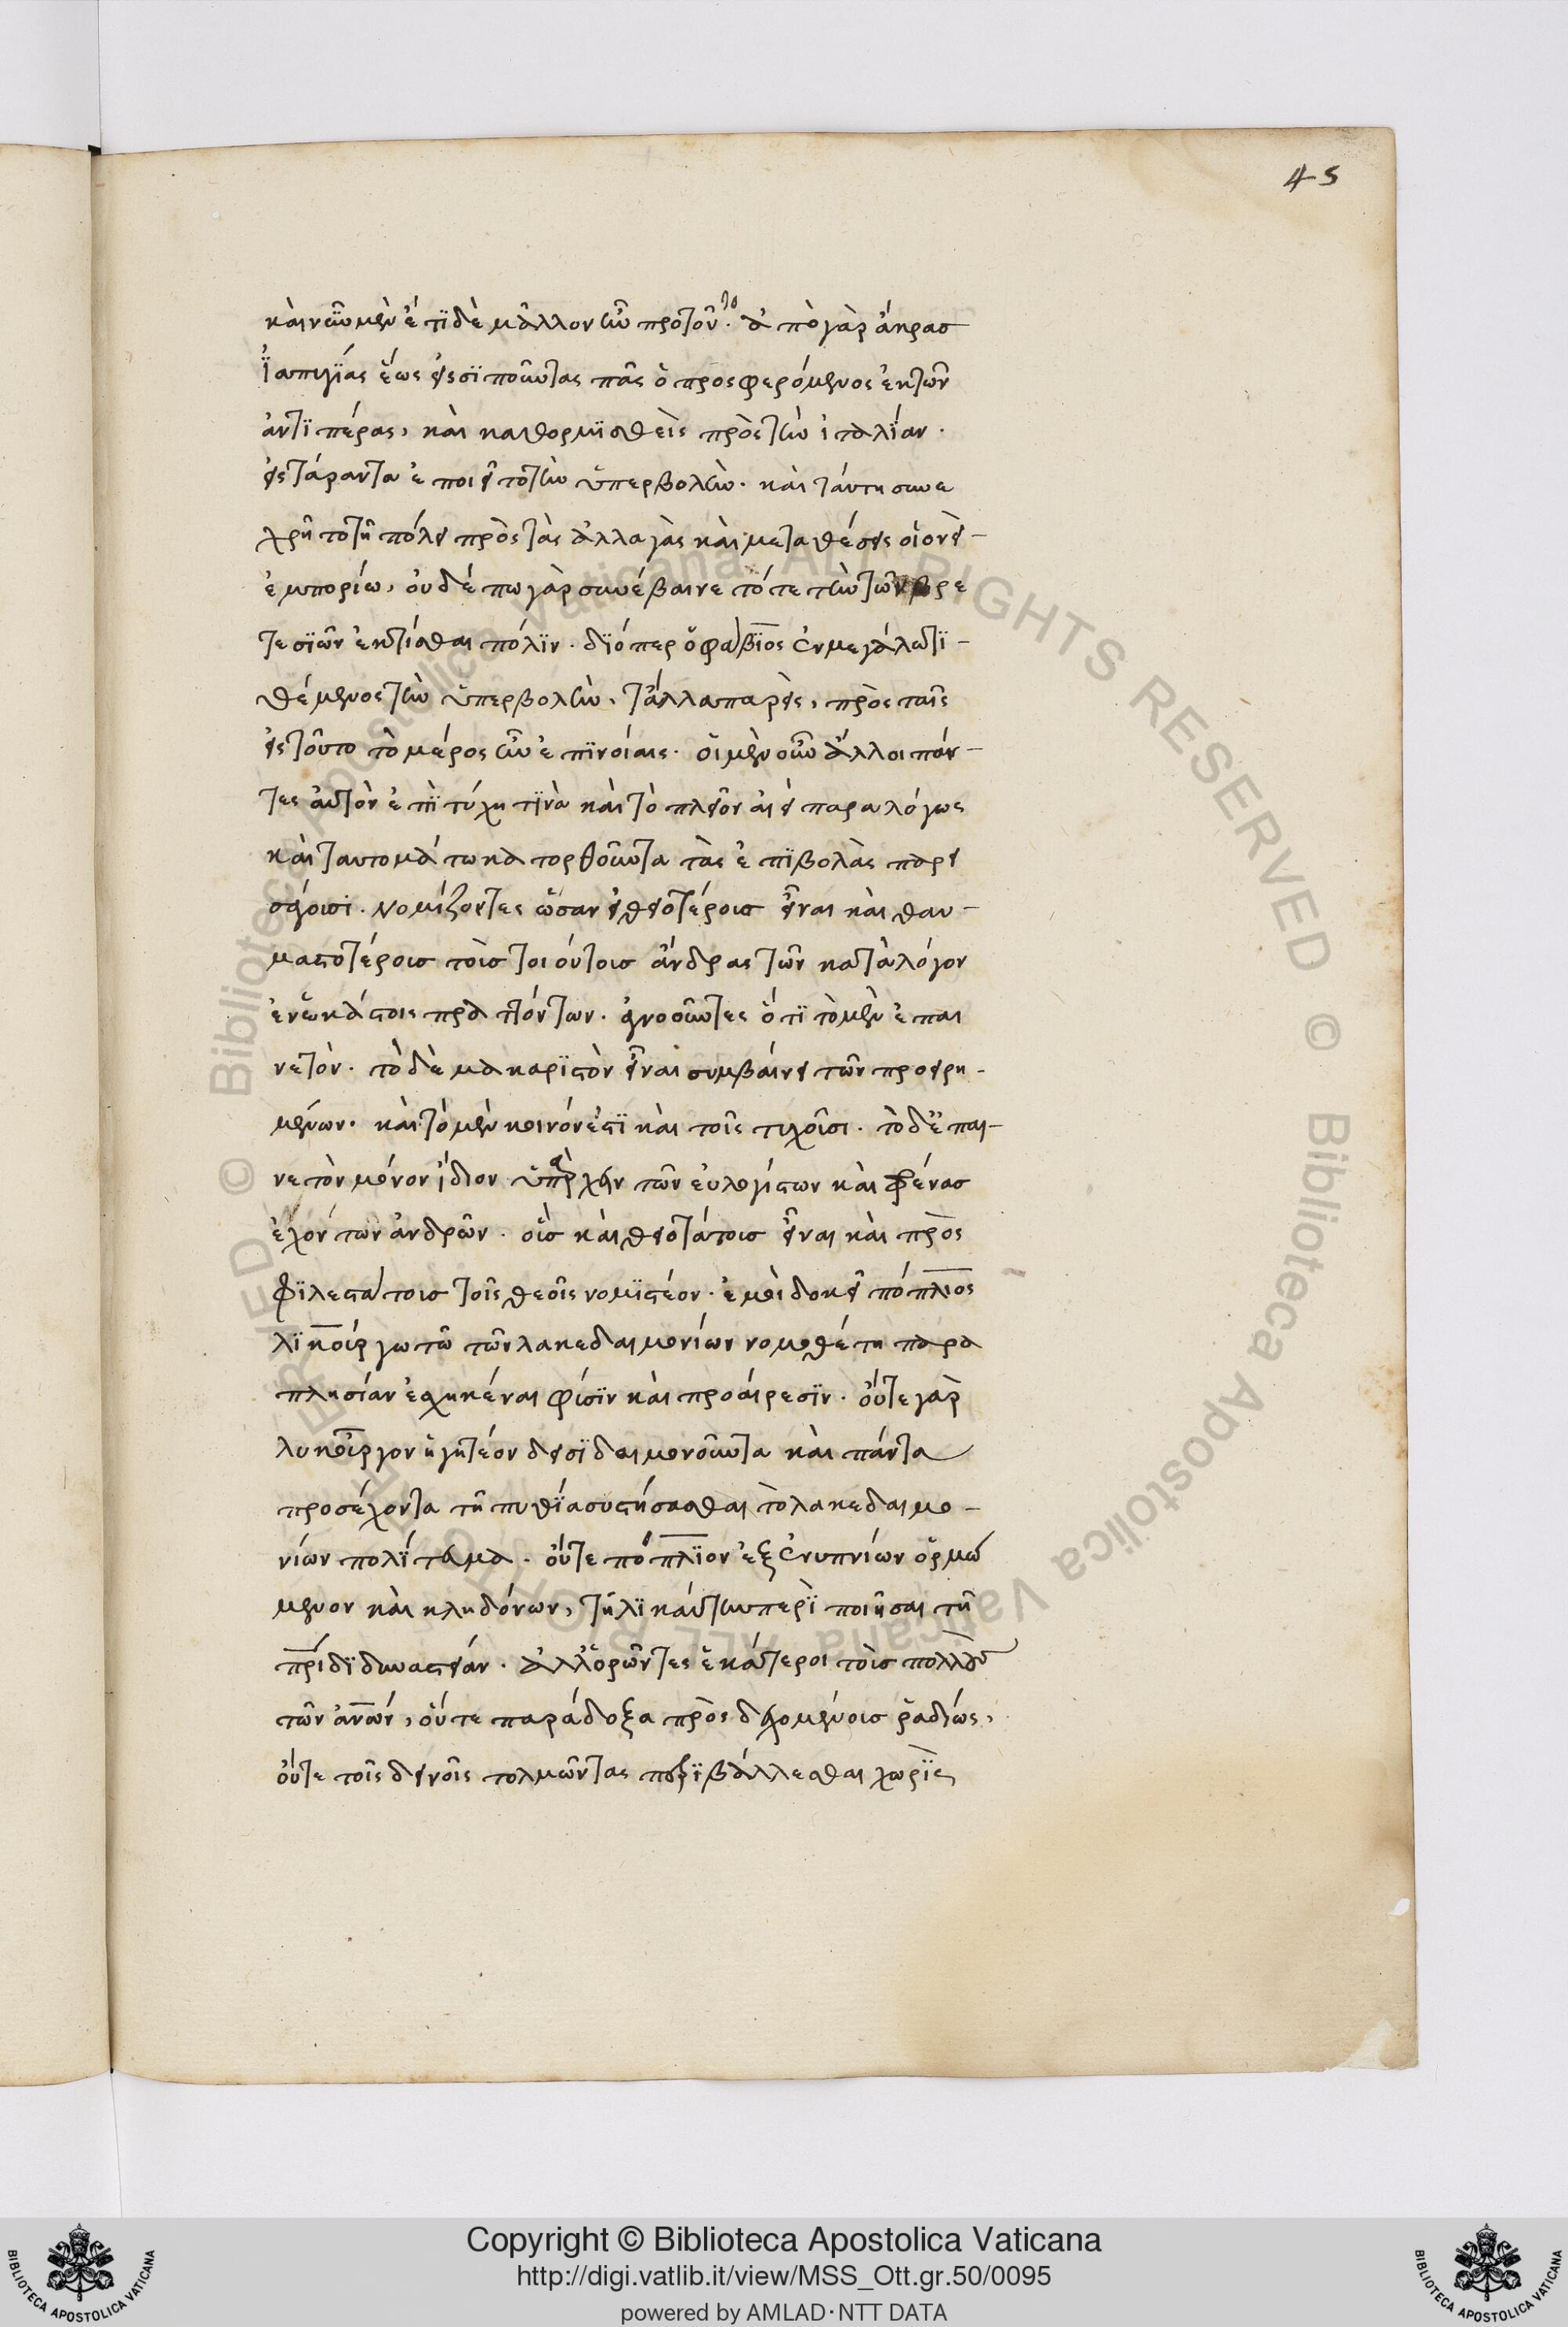 45
καὶ νῦν μὲν ἔτι δὲ μᾶλλον ἦν πρὸ τοῦ το. ἀπὸ γὰρ ἄκρας
Ἰαπυγίας ἕως εἰς σιποῦντας πᾶς ὁ προσφερόμενος ἐκ τῶν
ἀντιπέρας, καὶ καθορμισθεὶς πρὸς τὴν ἰταλίαν.
εἰς τάραντα ἐποιεῖτο τὴν ὑπερβολήν. καὶ ταύτη συνε
χρῆτο τῇ πόλει πρὸς τὰς ἀλλαγὰς καὶ μεταθέσεις οἱονεὶ-
ἐμπορίω, οὐδέπω γὰρ συνέβαινε τότε τὴν τῶν βρε
τεσίων ἐκτίσθαι πόλιν. διόπερ ὁ φάβιος ἐν μεγάλω τι-
θέμενος τὴν ὑπερβολήν, τἆλλα παρεὶς, πρὸς ταῖς
εἰς τοῦτο τὸ μέρος ἦν ἐπινοίαις. οἱ μὲν οὖν ἄλλοι πάν-
τες αὐτὸν ἐπιτύχη τινὰ καὶ τὸ πλεῖον αἰεὶ παραλόγως
καὶ ταυτομάτω κατορθοῦντα τὰς ἐπιβολὰς παρει
σάγουσι. νομίζοντες ὡσανεὶ θειοτέροις εἶναι καὶ θαυ-
μαστοτέροις τοὶς τοιούτοις ἄνδρας τῶν κατὰ λόγον
ἐν ἑκάστοις πραττόντων. ἀγνοοῦντες ὅτι τὸ μὲν ἐπαι
νετὸν. τὸ δὲ μακαριστὸν εἶναι συμβαίνει τῶν προειρη-
μένων. καὶ τὸ μὲν κοινόν ἐστι καὶ τοῖς τυχοῦσι. τὸ δ' ἐπαι-
νετὸν μόνον ἴδιον ὑπάρχειν τῶν εὐλογίστων καὶ φρένας
ἐχόντων ἀνδρῶν. οἷς καὶ θειοτάτοις εἶναι καὶ προς
φιλεστάτοις τοῖς θεοῖς νομιστέον. ἐμοὶ δοκεῖ πόπλιος
λικούργω τῶ τῶν λακεδαιμονίων νομοθέτη παρα
πλησίαν ἐσχηκέναι φύσιν καὶ προαίρεσιν. οὔτε γὰρ
λυκοῦργον ἡγητέον δεισιδαιμονοῦντα καὶ πάντα
προσέχοντα τῇ πυθία συστήσασθαι τὸ λακεδαιμο-
νίων πολίτευμα. οὔτε πόπλιον ἐξ ἐνυπνίων ὁρμώ
μενον καὶ κληδόνων, τηλικαύτην περιποιῆσαι τῇ
πρίδι δυναστείαν. ἀλλ' ὁρῶντες ἑκάτεροι τοὶς πολλοὺς
τῶν ἀνῶν, οὔτε παράδοξα προσδεχομένοις ῥαδίως,
οὔτε τοῖς δεινοῖς τολμῶντας παραβάλλεσθαι χωρὶς
Copyright © Biblioteca Apostolica Vaticana
http://digi.vatlib.it/view/MSS_Ott.gr.50/0095
powered by AMLAD·NTT DATA
BIBLIOTECA APOSTOLICA VATICANA
BIBLIOTECA APOSTOLICA VATICANA
© Biblioteca Apostolica Vaticana ALL RIGHTS RESERVED
© Biblioteca Apostolica Vaticana ALL RIGHTS RESERVED